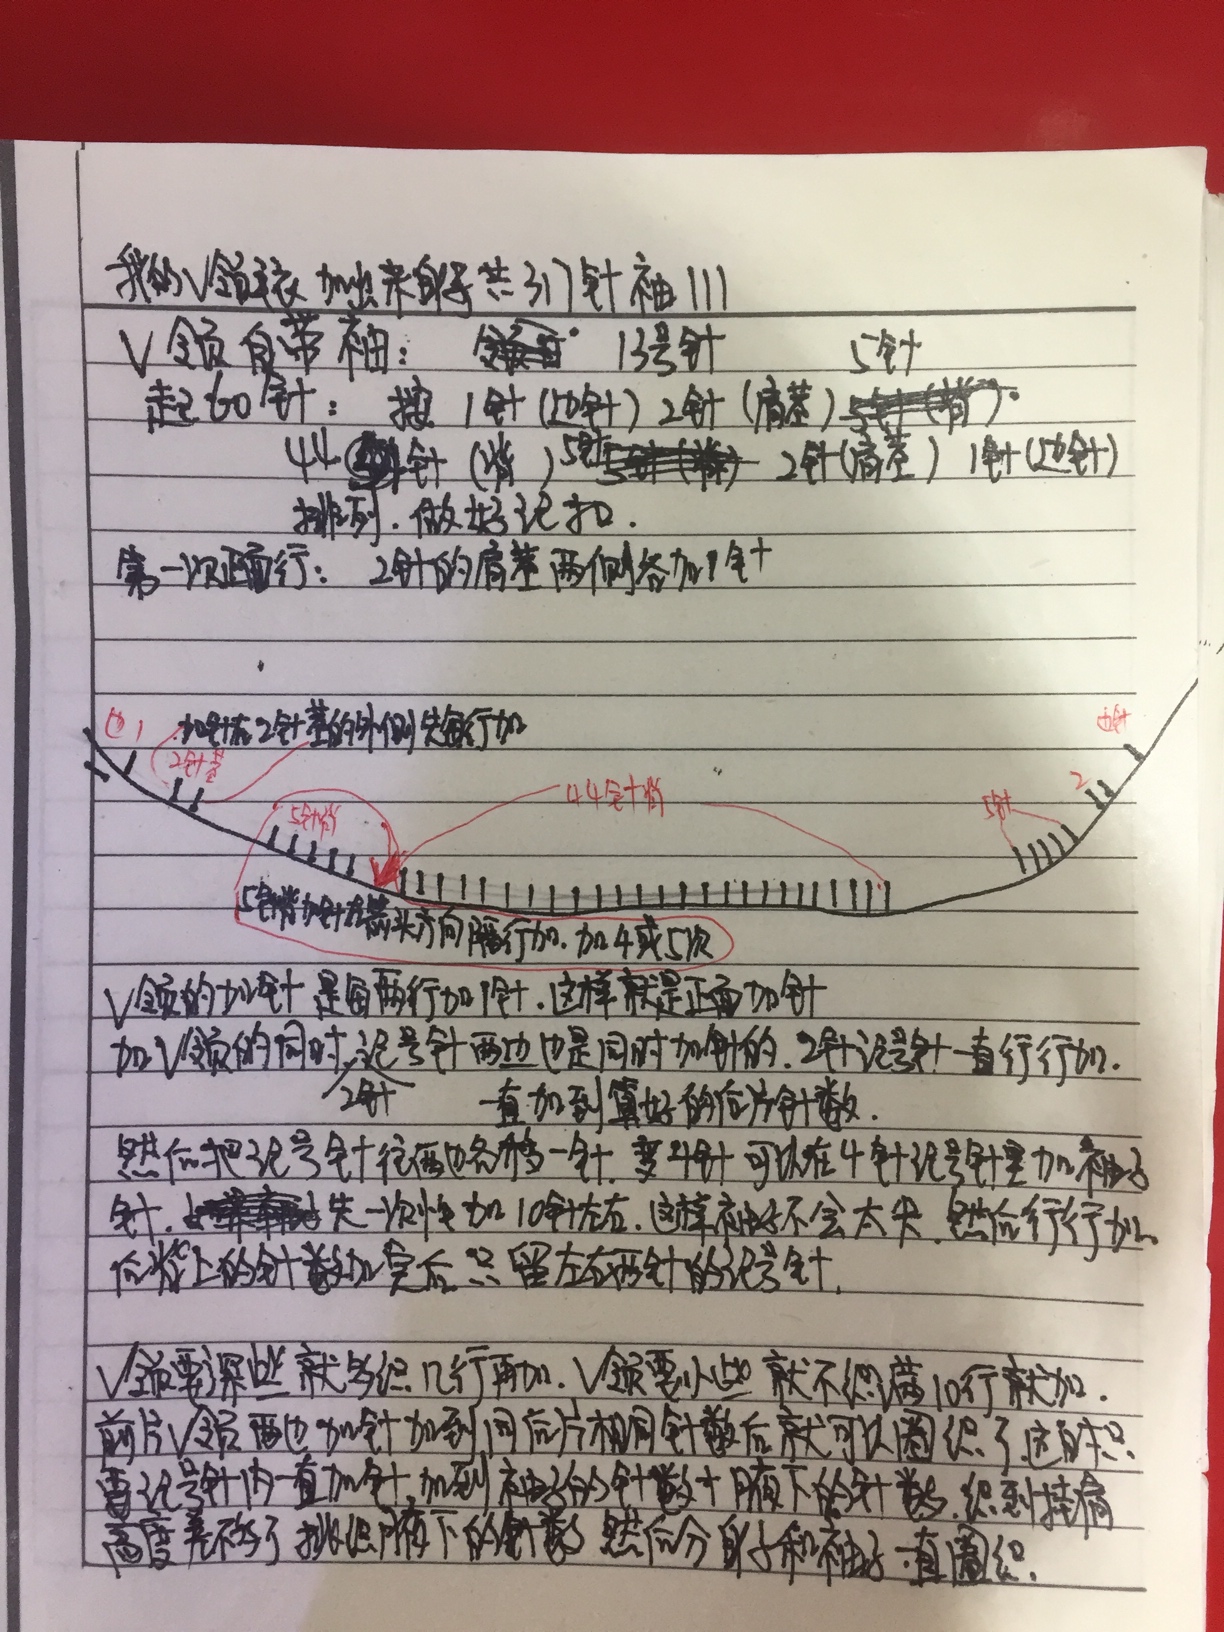 我的V领毛衣 加出来身子共317针 袖111
V领自带袖： 13号针 5针
起60针： 按 1针(边针) 2针(肩茎)
44针(背) 5针 2针(肩茎) 1针(边针)
排列. 做好记扣.
第一次正面行： 2针的肩茎两侧各加1针
边1 加针在2针茎的外侧 先每行加 边针
2针茎 2
5针背 44针背 5针
5针背加针在箭头方向隔行加. 加4或5次
V领的加针 是每两行加1针. 这样就是正面加针
加V领的同时, 记号针两边也是同时加针的. 2针记号针一直行行加.
2针 一直加到算好的后片针数.
然后把记号针往两边各移一针. 变4针 可以在4针记号针里加袖子
针. 先一次性加10针左右. 这样袖子不会太尖. 然后行行加.
后背上的针数加完后 只留左右两针的记号针.
V领要深些就多织几行再加. V领要小些就不织满10行就加.
前片V领两边加针加到同后片相同针数后就可以圈织了. 这时只
要记号针内一直加针. 加到袖子的针数+腋下的针数. 织到挂肩
高度差不多了 挑织腋下的针数 然后分身子和袖子一直圈织.